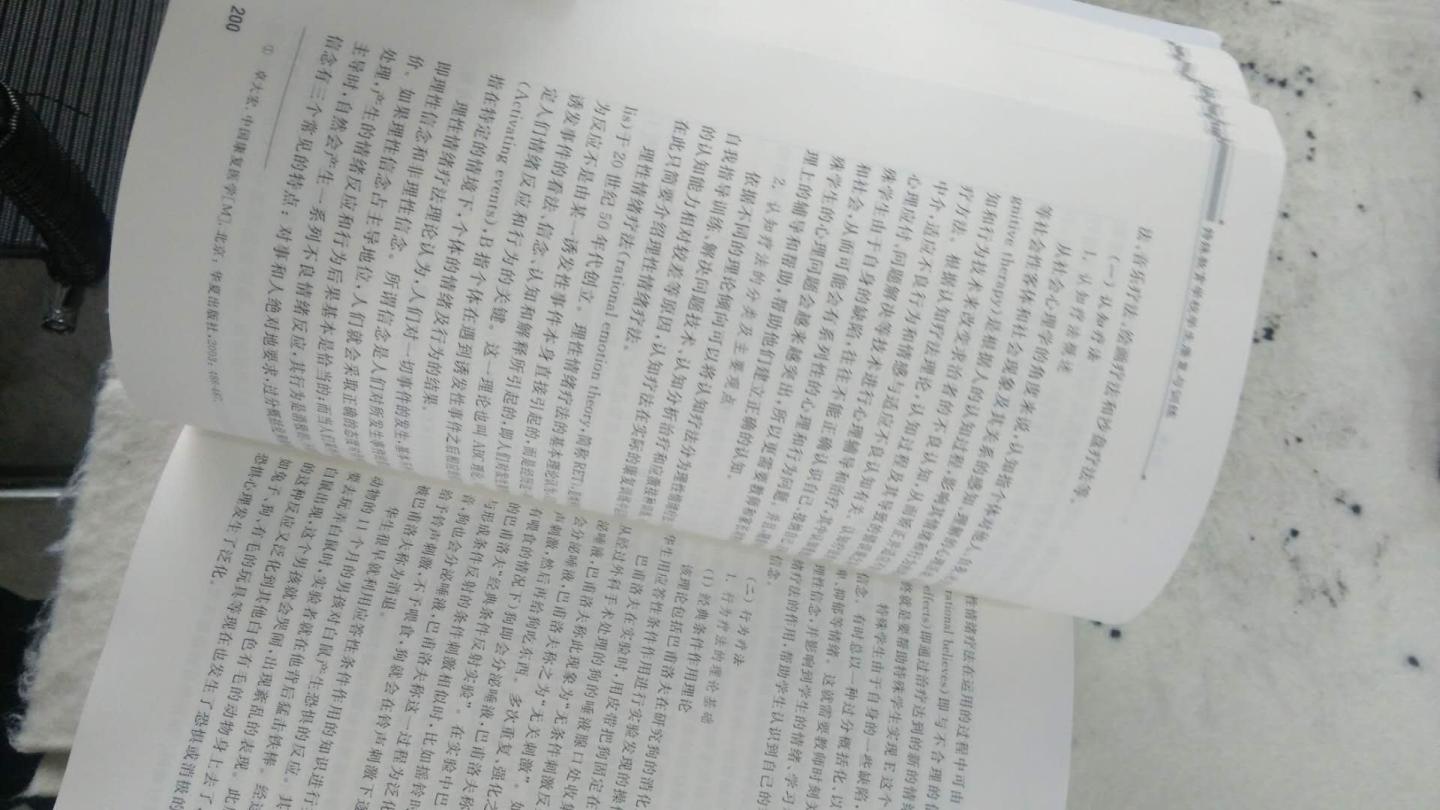 特殊教育学校学生康复与训练
法、音乐疗法、绘画疗法和沙盘疗法等。
(一) 认知疗法
1. 认知疗法概述
从社会心理学的角度来说,认知指个体对他人、自身
等社会性客体和社会现象及其关系的感知、理解的心理
gnitive therapy)是根据人的认知过程,影响其情绪和行为
知和行为技术来改变求治者的不良认知,从而矫正
疗方法。根据认知疗法理论,认知过程及其导致的
中介,适应不良行为和情感与适应不良认知有关。
心理应付、问题解决等技术进行心理辅导和治疗,其
殊学生由于自身的缺陷,往往不能正确认识自己、
和社会,从而可能会有系列性的心理和行为问题,
殊学生的心理问题会越来越突出,所以更需要教师和家长
理上的辅导和帮助,帮助他们建立正确的认知。
2. 认知疗法的分类及主要观点
依据不同的理论倾向可以将认知疗法分为理性情绪
自我指导训练、解决问题技术、认知分析治疗和应激接种
的认知能力相对较差等原因,认知疗法在实际的康复训练
在此只简要介绍理性情绪疗法。
理性情绪疗法(rational emotion theory,简称 RET),是
lis)于 20 世纪 50 年代创立。理性情绪疗法的基本理论认为
为反应不是由某一诱发性事件本身直接引起的,而是
诱发事件的看法、信念、认知和解释所引起的,即人们对
定人们情绪反应和行为的关键。这一理论也叫 ABC 理论
(Activating events),B 指个体在遇到诱发性事件之后
指在特定的情境下,个体的情绪及行为的结果。
理性情绪疗法理论认为,人们对一切事件的发生,
即理性信念和非理性信念。所谓信念是人们对所发生事件
价。如果理性信念占主导地位,人们就会采取正确的态度
处理,产生的情绪反应和行为后果基本是恰当的;而当
主导时,自然会产生一系列不良情绪反应,其行为是消极
信念有三个常见的特点:对事和人绝对地要求、过分概括
① 卓大宏.中国康复医学[M].北京:华夏出版社,2003:
200
性情绪疗法在运用的过程中可由
rational believes)即与不合理的
effects)即通过治疗达到的新的情绪
终就是要帮助特殊学生实现 E 这个
特殊学生由于自身的一些缺陷,
信念。有时总以一种过分概括化、以
抑郁等情绪。这就需要教师时刻关
理性信念,并影响到学生的情绪、学习
绪疗法的作用,帮助学生认识到自己的
信念。
(二) 行为疗法
1. 行为疗法的理论基础
(1) 经典条件作用理论
该理论包括巴甫洛夫在研究狗的消化
华生用应答性条件作用进行实验发现的操
巴甫洛夫在实验时,用皮带把狗固定在
从经过外科手术处理的狗的唾液腺口处收集
泌唾液,巴甫洛夫称此现象为"无条件刺激反
会分泌唾液,巴甫洛夫称之为"无关刺激"。如
声刺激,然后再给狗吃东西。多次重复、强化之
有喂食的情况下)狗即会分泌唾液,巴甫洛夫称
的巴甫洛夫"经典条件反射实验"。在实验中巴
与形成条件反射的条件刺激相似时,比如摇铃时
音,狗也会分泌唾液,巴甫洛夫称这一过程为泛化
给予铃声刺激,不予喂食,狗就会在铃声刺激下逐
被巴甫洛夫称为消退。
华生很早就利用应答性条件作用的知识进行
动物的 11 个月的男孩对白鼠产生恐惧的反应。其
要去玩弄白鼠时,实验者就在他背后猛击铁棒。经过
白鼠出现,这个男孩就会哭闹,出现紊乱的表现。此后
的这种反应又泛化到其他白色有毛的动物身上去了,
如兔子、狗、有毛的玩具等现在也发生了恐惧或消极的
恐惧心理发生了泛化。